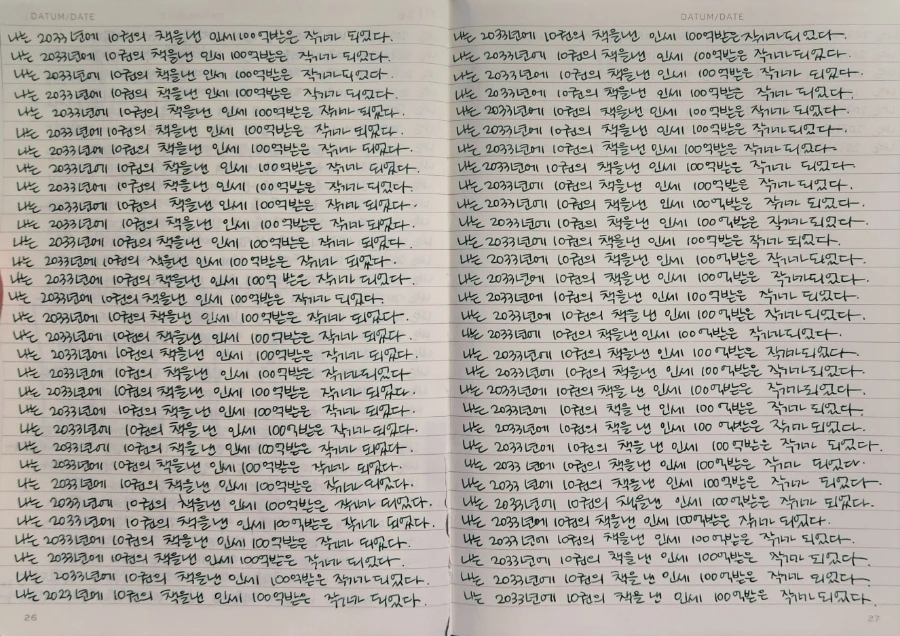 DATUM/DATE
나는 2033년에 10권의 책을낸 인세 100억받은 작가가 되었다.
나는 2033년에 10권의 책을낸 인세 100억받은 작가가 되었다.
나는 2033년에 10권의 책을낸 인세 100억받은 작가가 되었다.
나는 2033년에 10권의 책을낸 인세 100억받은 작가가 되었다.
나는 2033년에 10권의 책을낸 인세 100억받은 작가가 되었다.
나는 2033년에 10권의 책을낸 인세 100억받은 작가가 되었다.
나는 2033년에 10권의 책을낸 인세 100억받은 작가가 되었다.
나는 2033년에 10권의 책을낸 인세 100억받은 작가가 되었다.
나는 2033년에 10권의 책을낸 인세 100억받은 작가가 되었다.
나는 2033년에 10권의 책을낸 인세 100억받은 작가가 되었다.
나는 2033년에 10권의 책을낸 인세 100억받은 작가가 되었다.
나는 2033년에 10권의 책을낸 인세 100억받은 작가가 되었다.
나는 2033년에 10권의 책을낸 인세 100억받은 작가가 되었다.
나는 2033년에 10권의 책을낸 인세 100억 받은 작가가 되었다.
나는 2033년에 10권의 책을낸 인세 100억받은 작가가 되었다.
나는 2033년에 10권의 책을낸 인세 100억받은 작가가 되었다.
나는 2033년에 10권의 책을낸 인세 100억받은 작가가 되었다.
나는 2033년에 10권의 책을낸 인세 100억받은 작가가 되었다.
나는 2033년에 10권의 책을낸 인세 100억받은 작가가 되었다
나는 2033년에 10권의 책을낸 인세 100억받은 작가가 되었다.
나는 2033년에 10권의 책을낸 인세 100억받은 작가가 되었다.
나는 2033년에 10권의 책을낸 인세 100억받은 작가가 되었다.
나는 2033년에 10권의 책을낸 인세 100억받은 작가가 되었다.
나는 2033년에 10권의 책을낸 인세 100억받은 작가가 되었다.
나는 2033년에 10권의 책을낸 인세 100억받은 작가가 되었다.
나는 2033년에 10권의 책을낸 인세 100억받은 작가가 되었다.
나는 2033년에 10권의 책을낸 인세 100억받은 작가가 되었다.
나는 2033년에 10권의 책을낸 인세 100억받은 작가가 되었다.
나는 2033년에 10권의 책을낸 인세 100억받은 작가가 되었다.
나는 2033년에 10권의 책을낸 인세 100억받은 작가가 되었다.
나는 2023년에 10권의 책을낸 인세 100억받은 작가가 되었다.
26
DATUM/DATE
나는 2033년에 10권의 책을낸 인세 100억받은 작가가 되었다.
나는 2033년에 10권의 책을낸 인세 100억받은 작가가 되었다.
나는 2033년에 10권의 책을낸 인세 100억받은 작가가 되었다.
나는 2033년에 10권의 책을낸 인세 100억받은 작가가 되었다.
나는 2033년에 10권의 책을낸 인세 100억받은 작가가 되었다.
나는 2033년에 10권의 책을낸 인세 100억받은 작가가 되었다.
나는 2033년에 10권의 책을낸 인세 100억받은 작가가 되었다
나는 2033년에 10권의 책을낸 인세 100억받은 작가가 되었다.
나는 2033년에 10권의 책을낸 인세 100억받은 작가가 되었다.
나는 2033년에 10권의 책을낸 인세 100억받은 작가가 되었다.
나는 2033년에 10권의 책을낸 인세 100억받은 작가가 되었다.
나는 2033년에 10권의 책을낸 인세 100억받은 작가가 되었다.
나는 2033년에 10권의 책을낸 인세 100억받은 작가가되었다.
나는 2033년에 10권의 책을낸 인세 100억받은 작가가되었다.
나는 2033년에 10권의 책을낸 인세 100억받은 작가가 되었다.
나는 2033년에 10권의 책을낸 인세 100억받은 작가가되었다.
나는 2033년에 10권의 책을낸 인세 100억받은 작가가되었다.
나는 2033년에 10권의 책을낸 인세 100억받은 작가가되었다.
나는 2033년에 10권의 책을낸 인세 100억받은 작가가되었다.
나는 2033년에 10권의 책을 낸 인세 100억받은 작가가되었다.
나는 2033년에 10권의 책을 낸 인세 100억받은 작가가 되었다.
나는 2033년에 10권의 책을 낸 인세 100억받은 작가가 되었다.
나는 2033년에 10권의 책을 낸 인세 100억받은 작가가 되었다.
나는 2033년에 10권의 책을 낸 인세 100억받은 작가가 되었다.
나는 2033년에 10권의 책을 낸 인세 100억받은 작가가 되었다.
나는 2033년에 10권의 책을낸 인세 100억받은 작가가 되었다.
나는 2033년에 10권의 책을낸 인세 100억받은 작가가 되었다.
나는 2033년에 10권의 책을 낸 인세 100억받은 작가가 되었다.
나는 2033년에 10권의 책을 낸 인세 100억받은 작가가 되었다.
나는 2033년에 10권의 책을 낸 인세 100억받은 작가가 되었다.
나는 2033년에 10권의 책을 낸 인세 100억받은 작가가 되었다.
27